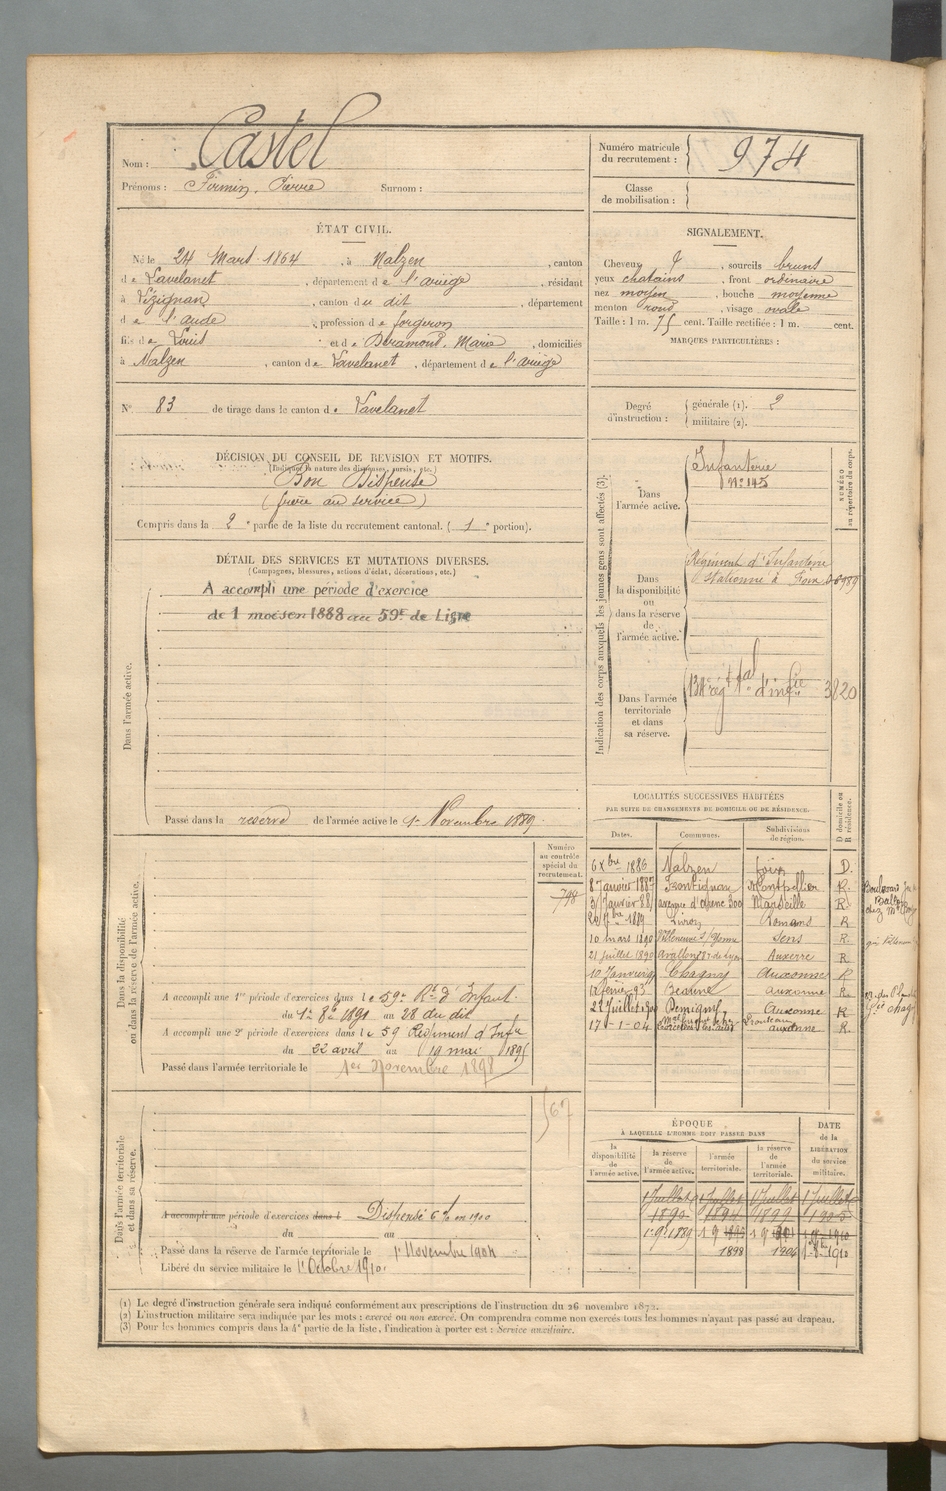 Nom : Castel
Prénoms : Firmin, Pierre Surnom :
Numéro matricule du recrutement : 974
Classe de mobilisation :
ÉTAT CIVIL.
Né le 24 Mars 1864, à Nalzen, canton
de Lavelanet, département de l'ariège, résidant
à Lézignan, canton du dit, département
de l'aude, profession de forgeron
fils de Louis et de Deramond, Marie, domiciliés
à Nalzen, canton de Lavelanet, département de l'ariège
SIGNALEMENT.
Cheveux, sourcils bruns
yeux chatains, front ordinaire
nez moyen, bouche moyenne
menton rond, visage ovale
Taille : 1 m. 75 cent. Taille rectifiée : 1 m. cent.
MARQUES PARTICULIÈRES :
N° 83 de tirage dans le canton de Lavelanet
Degré d'instruction : générale (1). 2
militaire (2).
DÉCISION DU CONSEIL DE REVISION ET MOTIFS.
(Indiquer la nature des dispenses, sursis, etc.)
Bon Dispensé
(frère au service)
Compris dans la 2e partie de la liste du recrutement cantonal. (1e portion).
DÉTAIL DES SERVICES ET MUTATIONS DIVERSES.
(Campagnes, blessures, actions d'éclat, décorations, etc.)
Dans l'armée active.
A accompli une période d'exercice
de 1 mois en 1888 au 59e de Ligne
Passé dans la réserve de l'armée active le 1er Novembre 1889.
Indication des corps auxquels les jeunes gens sont affectés (3).
NUMÉRO au répertoire du corps.
Dans l'armée active.
Infanterie
n° 145
Dans la disponibilité ou dans la réserve de l'armée active.
Régiment d'Infanterie
stationné à Foix
Dans l'armée territoriale et dans sa réserve.
134 régt tal d'infie 3820
LOCALITÉS SUCCESSIVES HABITÉES
PAR SUITE DE CHANGEMENTS DE DOMICILE OU DE RÉSIDENCE.
Dates. Communes. Subdivisions de région. D domicile ou R résidence.
6 Xbre 1886 Nalzen foix D.
8 Janvier 1887 Frontignan Montpellier R.
3 Janvier 88 avenue d'arenc 300 Marseille R.
1889 Livron Romans R
10 mars 1890 Villeneuve s/Yonne Sens R.
21 juillet 1890 Avallon Auxerre R.
10 Janvier Chagny Auxonne R
Beaune auxonne R.
Demigny Auxonne R
17-1-04 auxonne R.
Dans la disponibilité ou dans la réserve de l'armée active.
Numéro au contrôle spécial du recrutement.
798
A accompli une 1re période d'exercices dans le 59e Rt d'Infant.
du 1er 8bre 1891 au 28 du dit
A accompli une 2e période d'exercices dans le 59 Régiment d'Infie
du 22 avril au 19 mai 1895
Passé dans l'armée territoriale le 1er Novembre 1898
Dans l'armée territoriale et dans sa réserve.
567
A accompli une période d'exercices dans l Dispensé en 1900
du au
Passé dans la réserve de l'armée territoriale le 1er Novembre 1904
Libéré du service militaire le 1er Octobre 1910.
ÉPOQUE
À LAQUELLE L'HOMME DOIT PASSER DANS
la disponibilité de l'armée active. la réserve de l'armée active. l'armée territoriale. la réserve de l'armée territoriale.
DATE de la LIBÉRATION du service militaire.
1 Juillet 1 Juillet 1 Juillet 1 Juillet
1890 1894 1899 1905
1.9.1889 1 9 1895 1 9 1901 1910
1898 1906 1910
(1) Le degré d'instruction générale sera indiqué conformément aux prescriptions de l'instruction du 26 novembre 1872.
(2) L'instruction militaire sera indiquée par les mots : exercé ou non exercé. On comprendra comme non exercés tous les hommes n'ayant pas passé au drapeau.
(3) Pour les hommes compris dans la 4e partie de la liste, l'indication à porter est : Service auxiliaire.